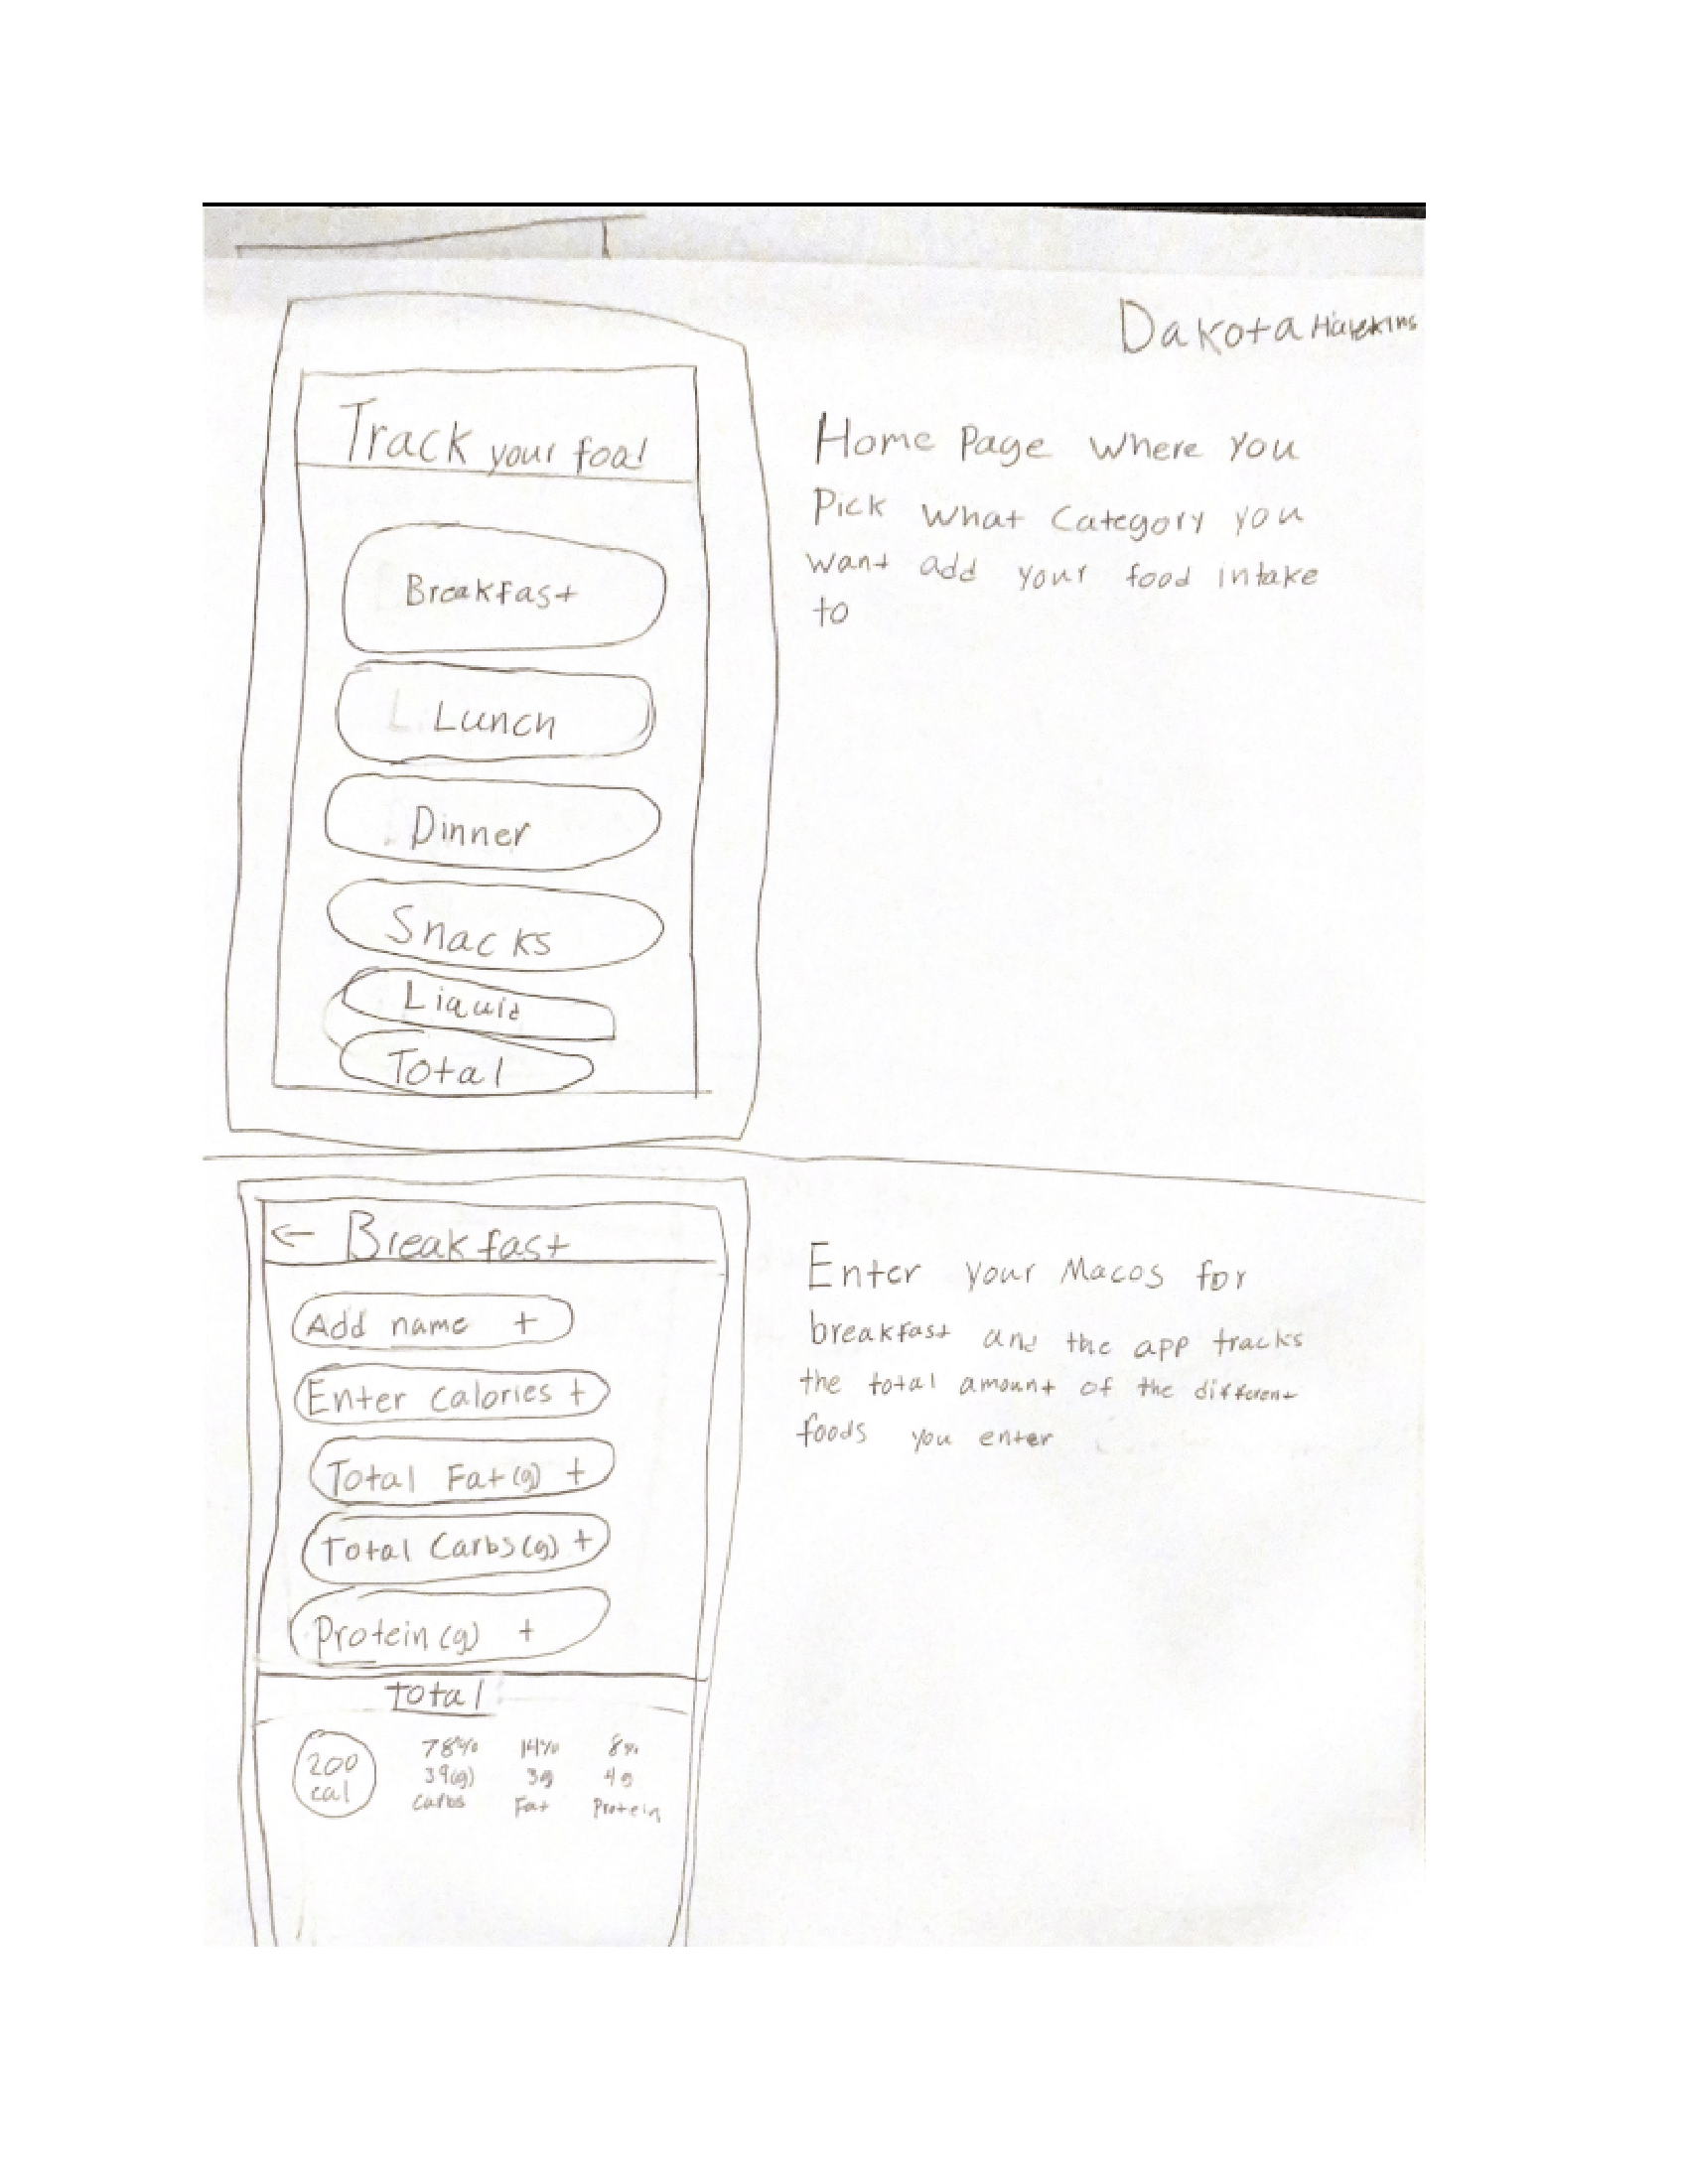 Dakota
Track your food
Breakfast
Lunch
Dinner
Snacks
Liquid
Total
Home Page where you
Pick what Category you
want add your food intake
to
← Breakfast
Add name +
Enter Calories +
Total Fat(g) +
Total Carbs(g) +
Protein(g) +
total
200
cal
78% 14% 8%
39(g) 3g 4g
Carbs Fat Protein
Enter your Macos for
breakfast and the app tracks
the total amount of the different
foods you enter